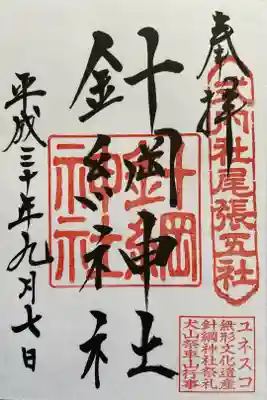 奉拝
内社尾張五社
針綱神社
針綱
神社
平成三十年九月七日
ユネスコ
無形文化遺産
針綱神社祭礼
犬山祭車山行事